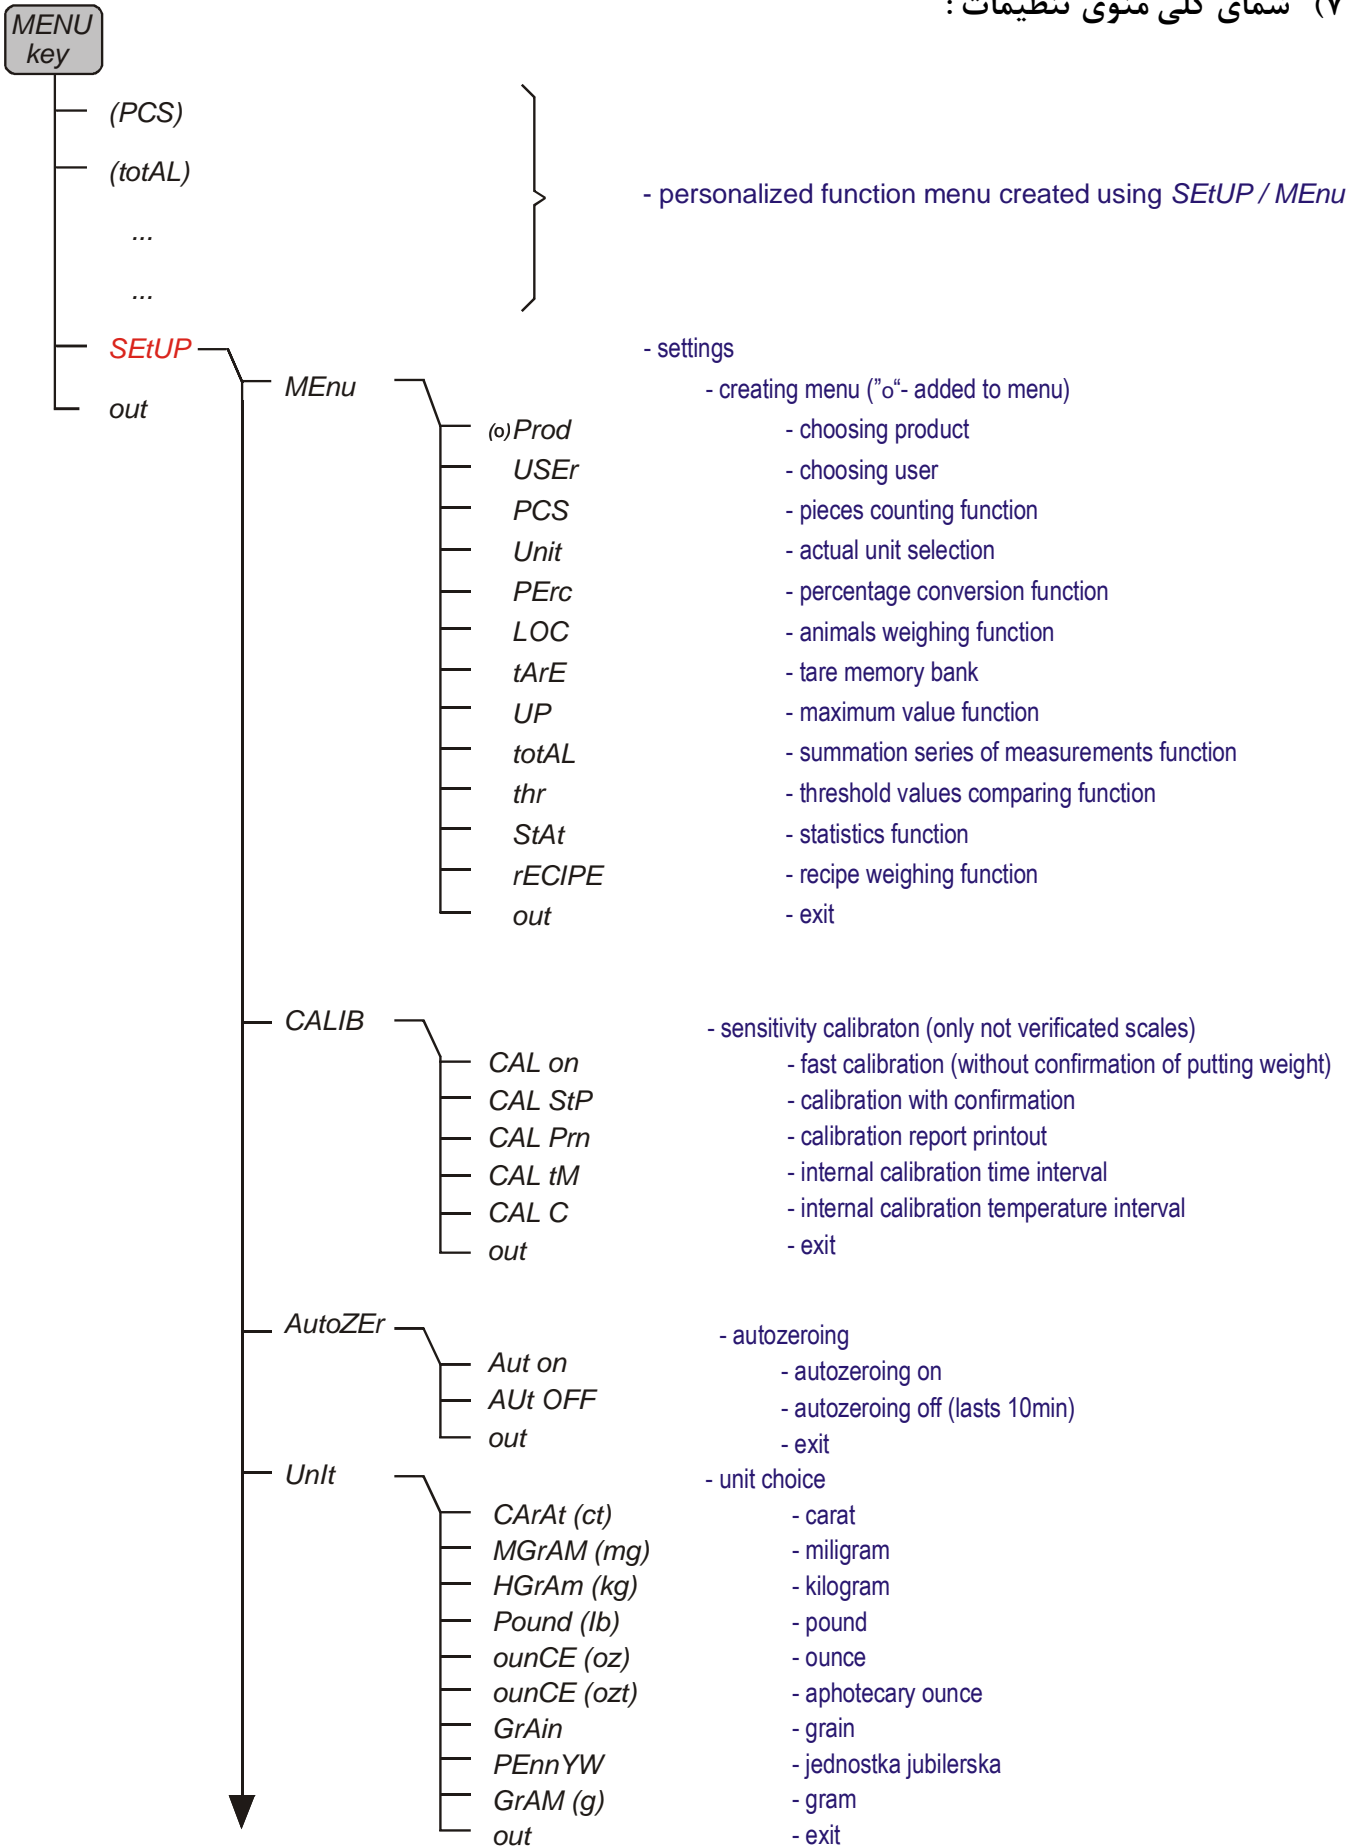 ۷) شمای کلی منوی تنظیمات :
MENU
key
(PCS)
(totAL)
- personalized function menu created using SEtUP / MEnu
...
...
SEtUP - settings
MEnu - creating menu (”o“- added to menu)
out
(o) Prod - choosing product
USEr - choosing user
PCS - pieces counting function
Unit - actual unit selection
PErc - percentage conversion function
LOC - animals weighing function
tArE - tare memory bank
UP - maximum value function
totAL - summation series of measurements function
thr - threshold values comparing function
StAt - statistics function
rECIPE - recipe weighing function
out - exit
CALIB - sensitivity calibraton (only not verificated scales)
CAL on - fast calibration (without confirmation of putting weight)
CAL StP - calibration with confirmation
CAL Prn - calibration report printout
CAL tM - internal calibration time interval
CAL C - internal calibration temperature interval
out - exit
AutoZEr - autozeroing
Aut on - autozeroing on
AUt OFF - autozeroing off (lasts 10min)
out - exit
UnIt - unit choice
CArAt (ct) - carat
MGrAM (mg) - miligram
HGrAm (kg) - kilogram
Pound (lb) - pound
ounCE (oz) - ounce
ounCE (ozt) - aphotecary ounce
GrAin - grain
PEnnYW - jednostka jubilerska
GrAM (g) - gram
out - exit